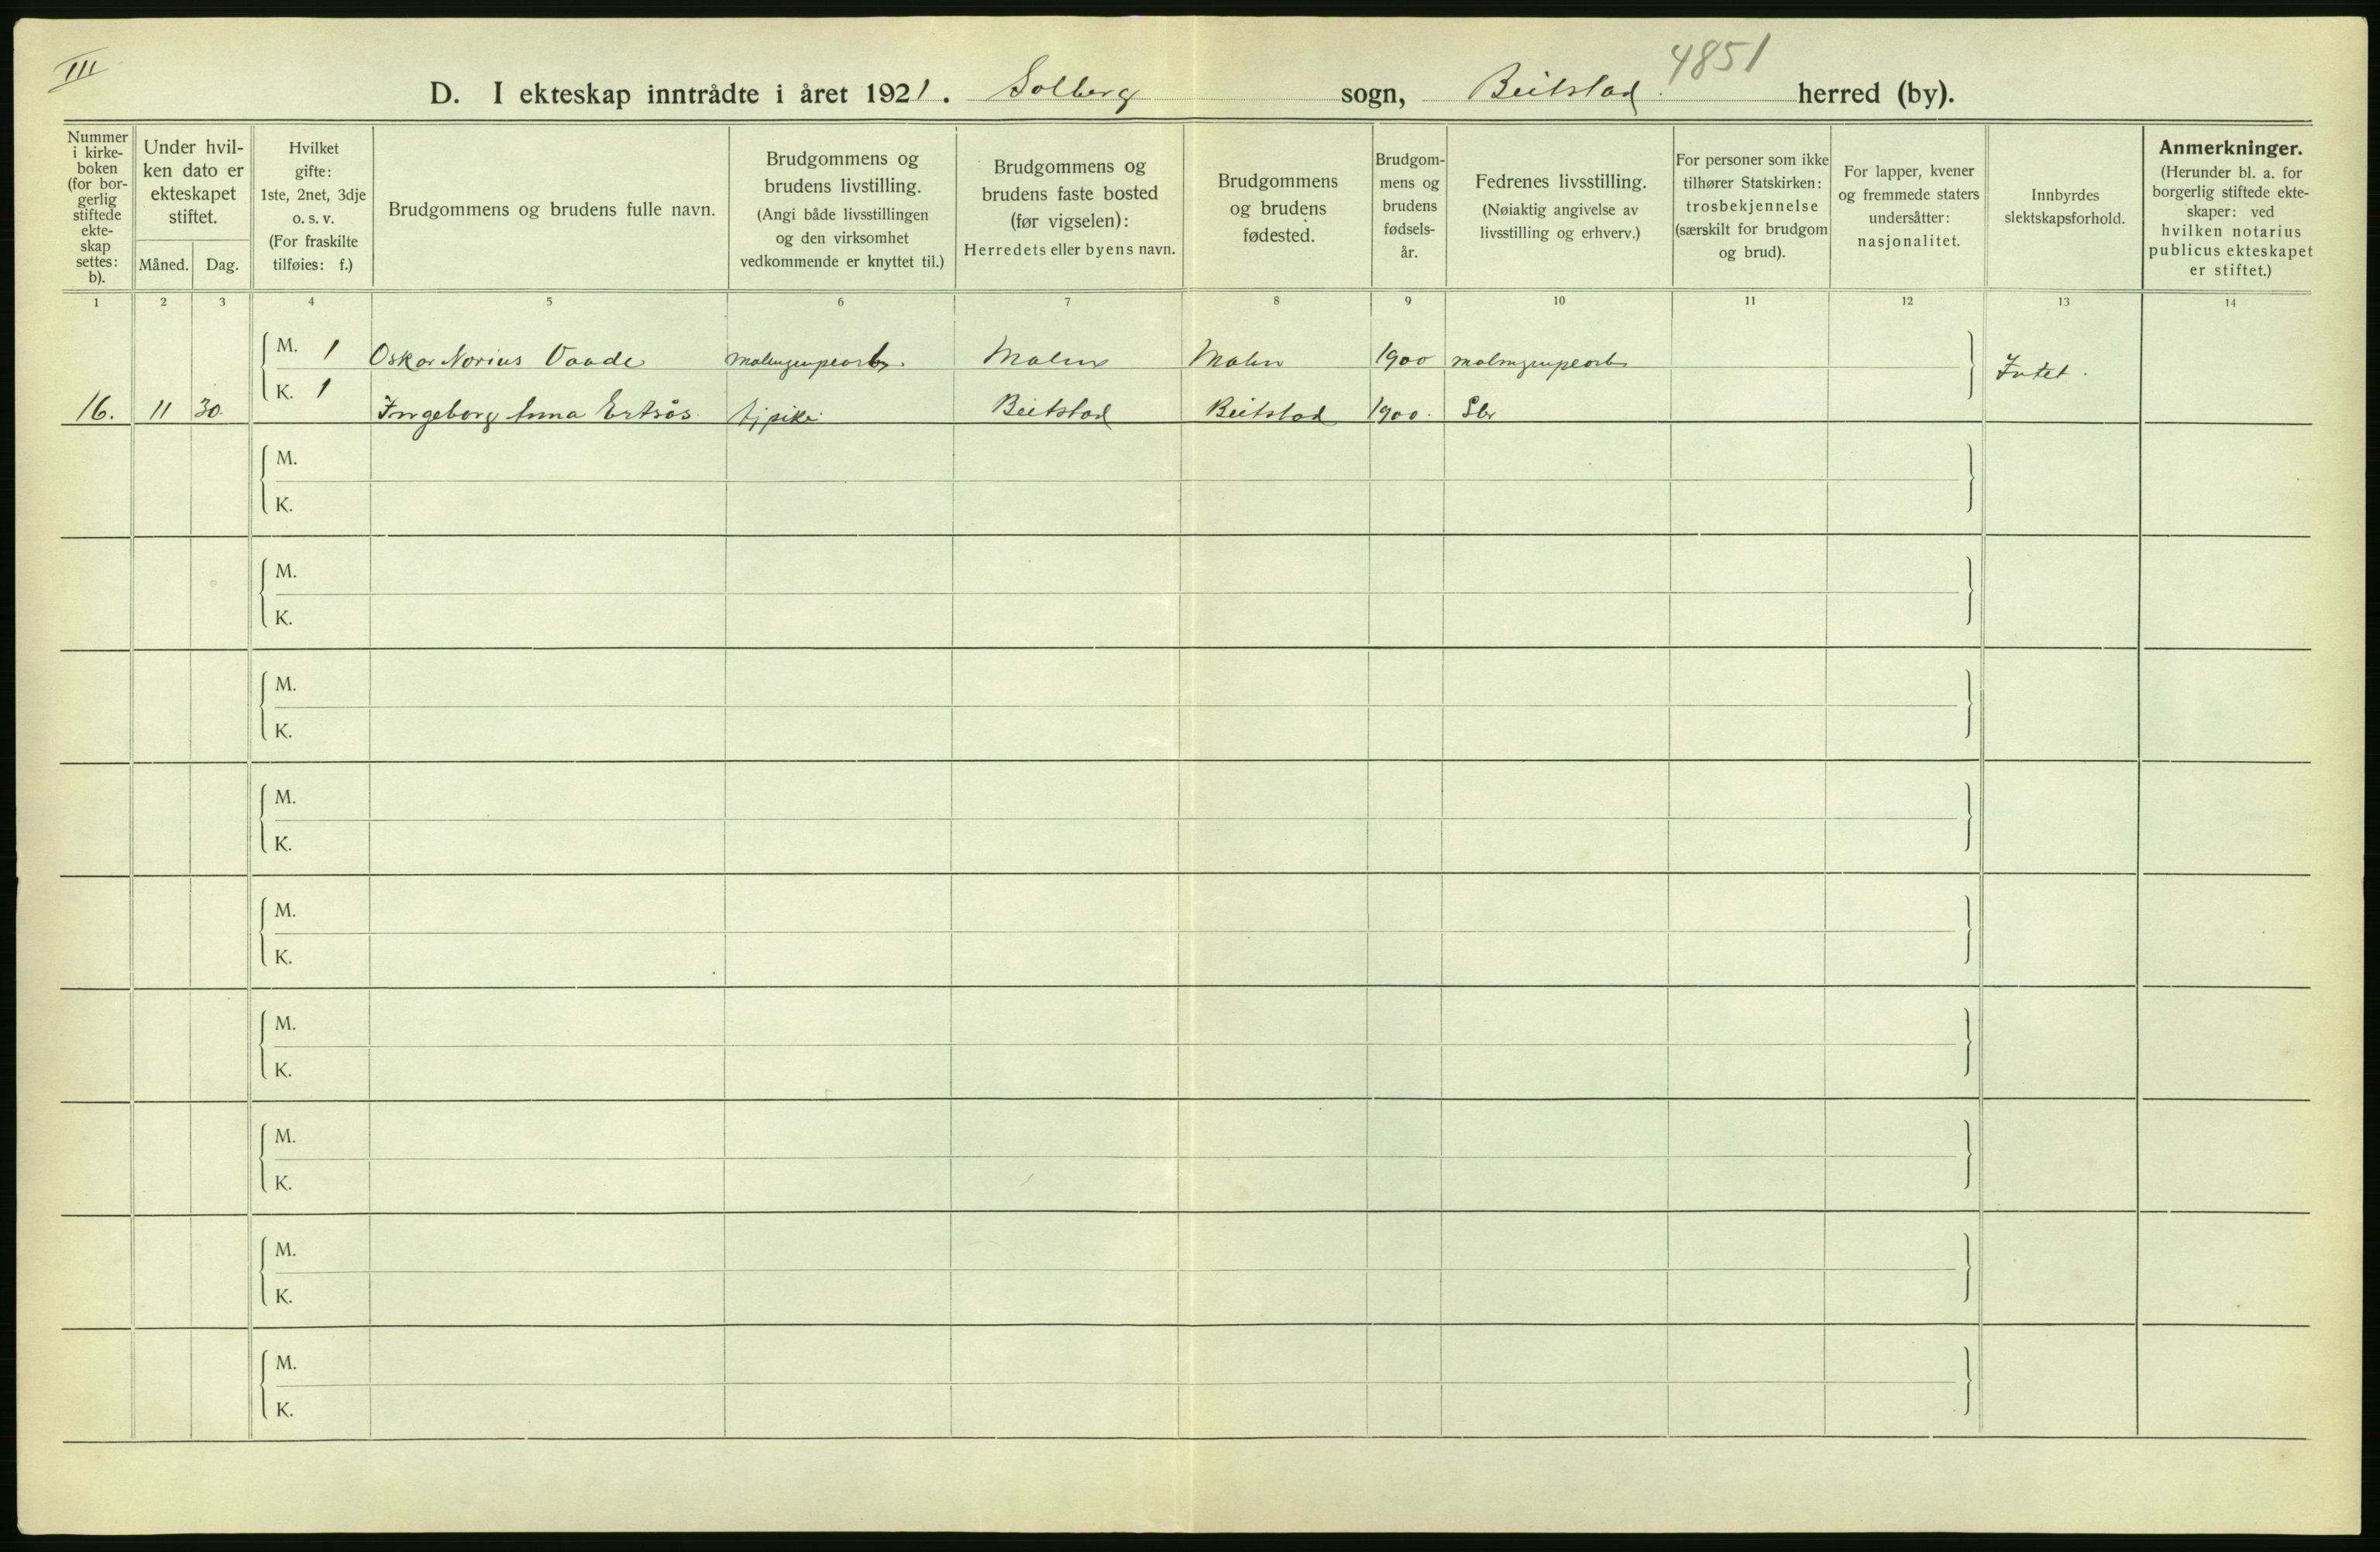 III
4851
D. I ekteskap inntrådte i året 1921. Solberg sogn, Beitstad herred (by).
Nummer
i kirke-
boken
(for bor-
gerlig
stiftede
ekte-
skap
settes:
b).
Under hvil-
ken dato er
ekteskapet
stiftet.
Måned. Dag.
Hvilket
gifte:
1ste, 2net, 3dje
o. s. v.
(For fraskilte
tilføies: f.)
Brudgommens og brudens fulle navn.
Brudgommens og
brudens livstilling.
(Angi både livsstillingen
og den virksomhet
vedkommende er knyttet til.)
Brudgommens og
brudens faste bosted
(før vigselen):
Herredets eller byens navn.
Brudgommens
og brudens
fødested.
Brudgom-
mens og
brudens
fødsels-
år.
Fedrenes livsstilling.
(Nøiaktig angivelse av
livsstilling og erhverv.)
For personer som ikke
tilhører Statskirken:
trosbekjennelse
(særskilt for brudgom
og brud).
For lapper, kvener
og fremmede staters
undersåtter:
nasjonalitet.
Innbyrdes
slektskapsforhold.
Anmerkninger.
(Herunder bl. a. for
borgerlig stiftede ekte-
skaper: ved
hvilken notarius
publicus ekteskapet
er stiftet.)
1 2 3 4 5 6 7 8 9 10 11 12 13 14
M. 1 Oskar Norius Vaade malmgrupearb. Malm Malm 1900 malmgrupearb Intet.
16. 11 30. K. 1 Ingeborg Anna Ertsås tjpike Beitstad Beitstad 1900. Sbr
M.
K.
M.
K.
M.
K.
M.
K.
M.
K.
M.
K.
M.
K.
M.
K.
M.
K.